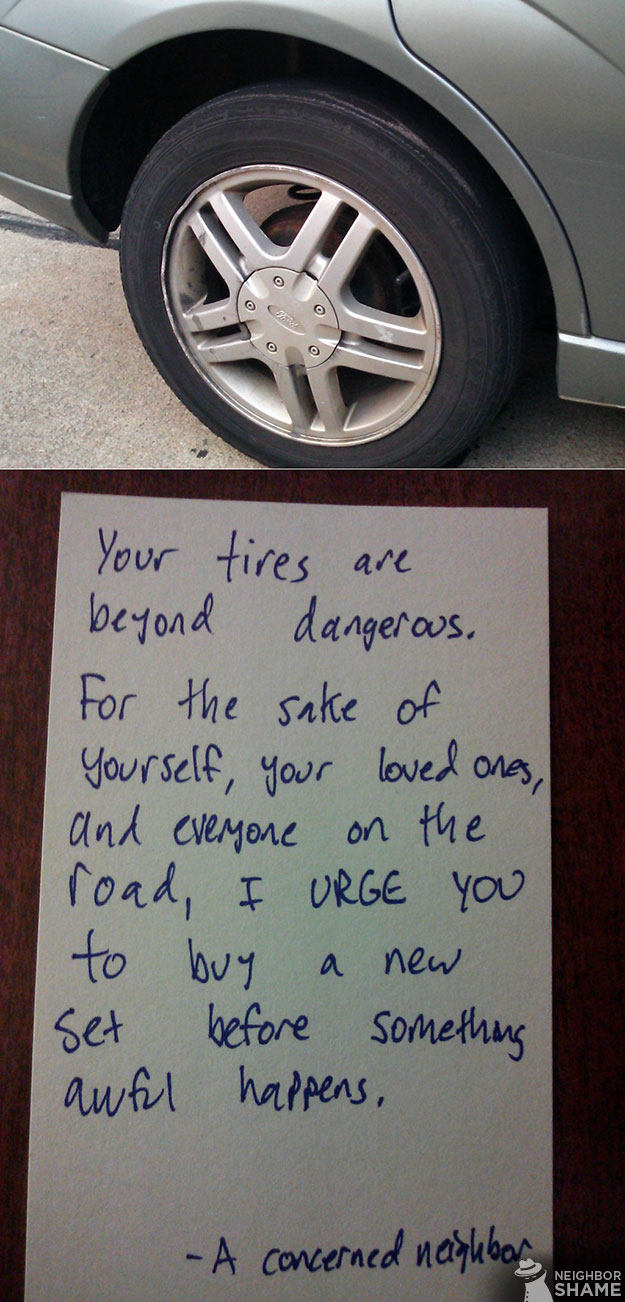 Ford
Your tires are
beyond dangerous.
For the sake of
yourself, your loved ones,
and everyone on the
road, I URGE YOU
to buy a new
set before something
awful happens.
- A concerned neighbor
NEIGHBOR
SHAME